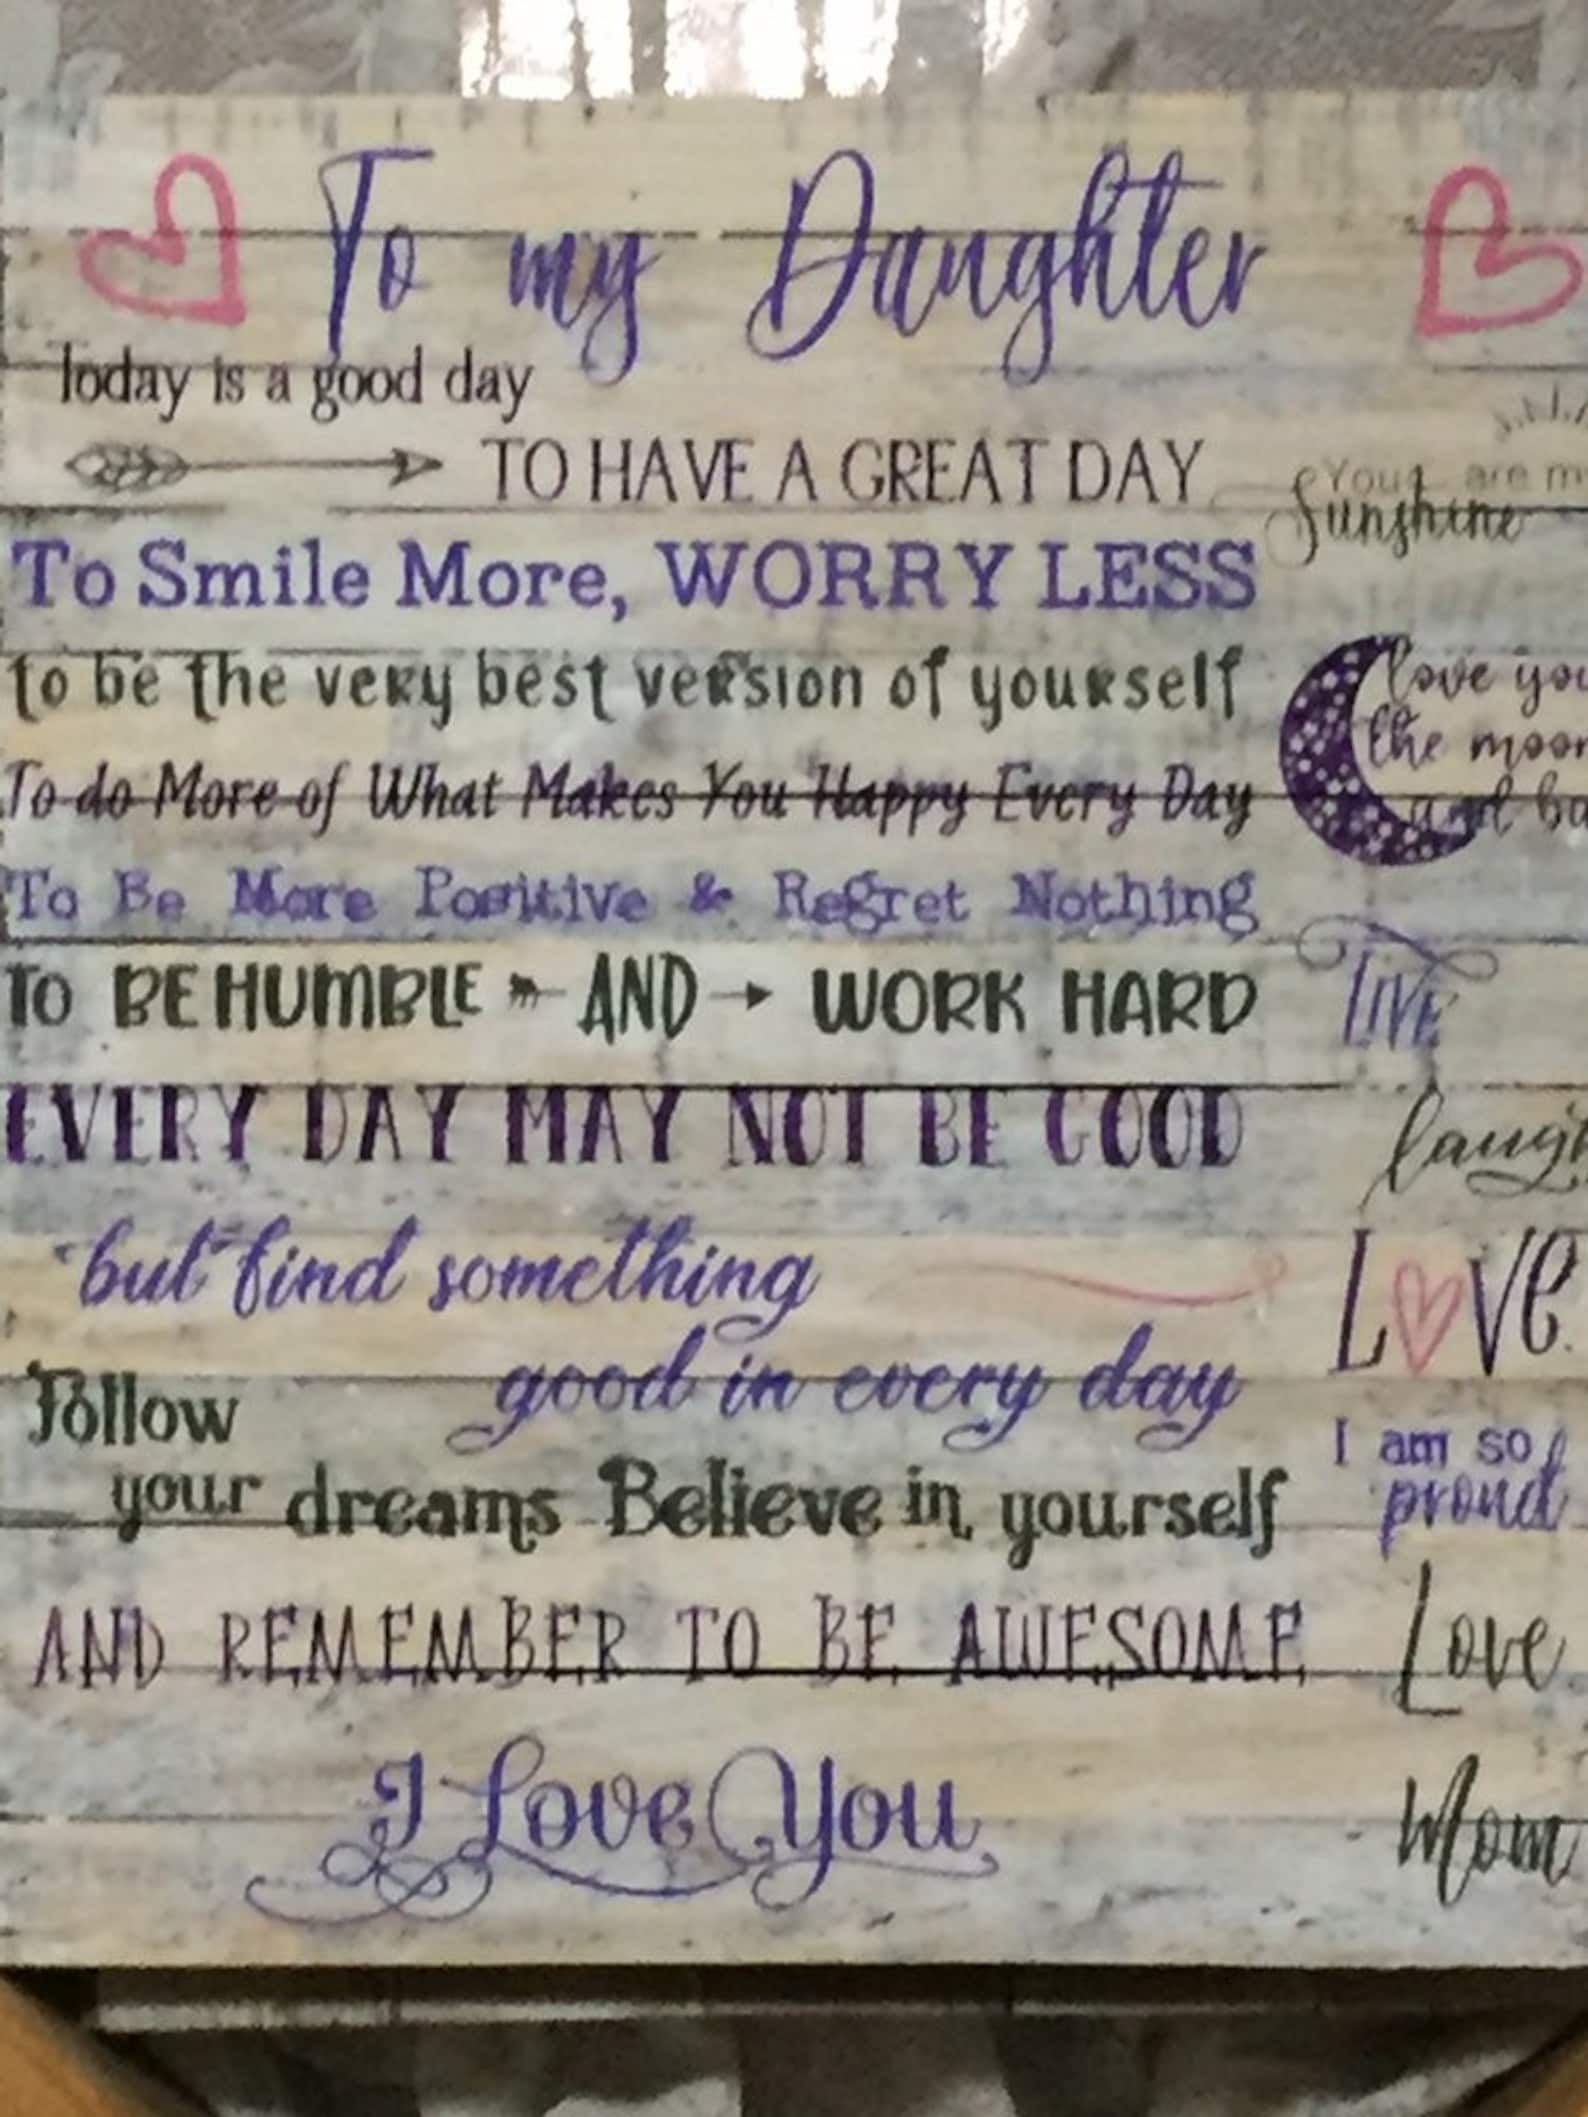 To my Daughter
Today is a good day
TO HAVE A GREAT DAY
You are
Sunshine
To Smile More, WORRY LESS
to be the very best version of yourself
love you
the moon
and
To do More of What Makes You Happy Every Day
To Be More Positive & Regret Nothing
To BE HUMBLE AND WORK HARD
LIVE
EVERY DAY MAY NOT BE GOOD
laugh
but find something
LOVE
good in every day
Follow
your dreams Believe in yourself
I am so
proud
AND REMEMBER TO BE AWESOME
Love
I Love You
Mom